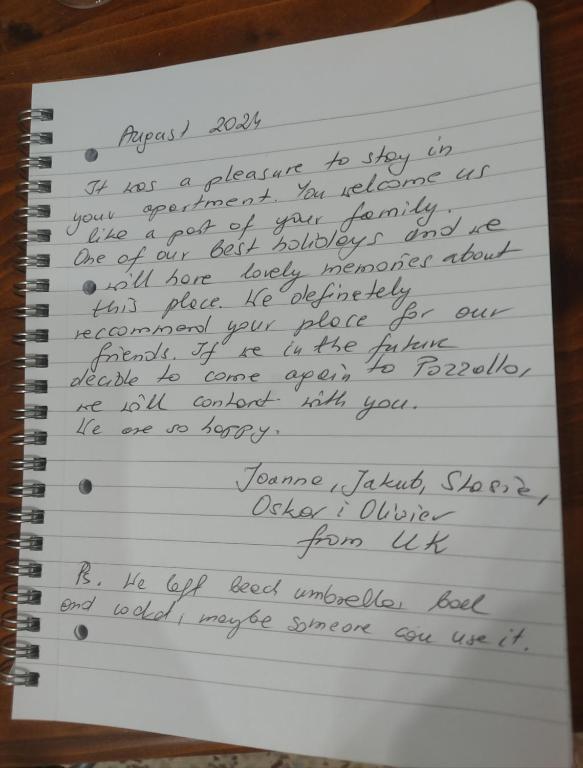 August 2024
It was a pleasure to stay in
your apartment. You welcome us
like a part of your family.
One of our best holideys and we
will have lovely memories about
this place. We definetely
reccommend your place for our
friends. If we in the future
decible to come again to Pozzallo,
we will contant with you.
We are so happy.
Joanna, Jakub, Stasie,
Oskar i Olivier
from UK
Ps. We left beech umbrella,
and , maybe someone cou use it.